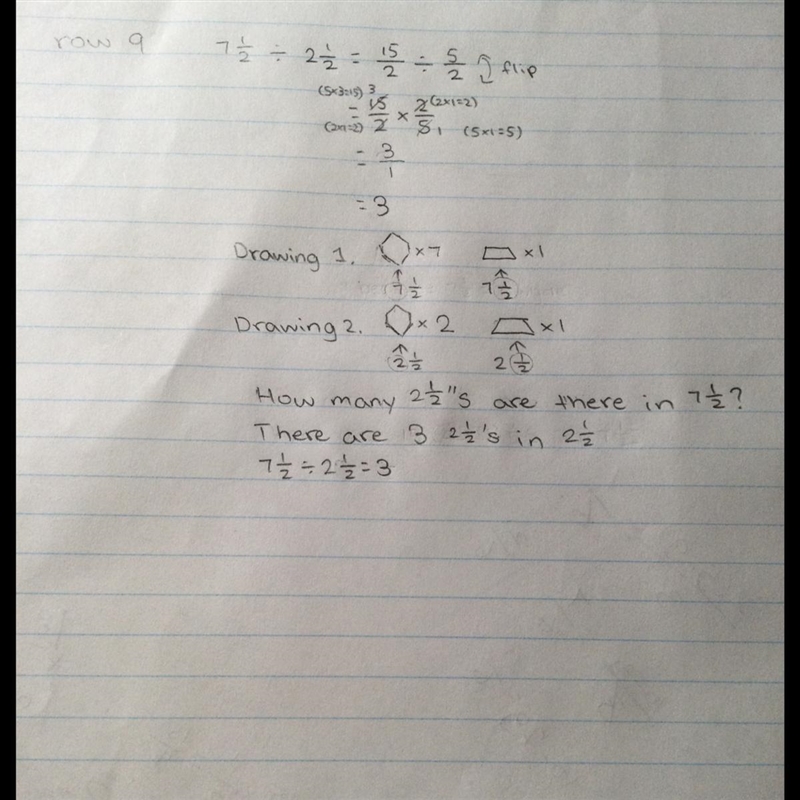 row 9 7 1/2 ÷ 2 1/2 = 15/2 ÷ 5/2 flip
(5×3=15) 3 (2×1=2)
= 15/2 × 2/5 1
(2×1=2) (5×1=5)
= 3/1
= 3
Drawing 1. ×7 ×1
7 1/2 7 1/2
Drawing 2. ×2 ×1
2 1/2 2 1/2
How many 2 1/2"s are there in 7 1/2?
There are 3 2 1/2's in 2 1/2
7 1/2 ÷ 2 1/2 = 3